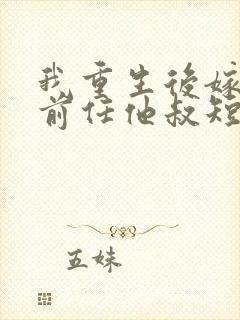 我重生後嫁
前任他叔短
五妹